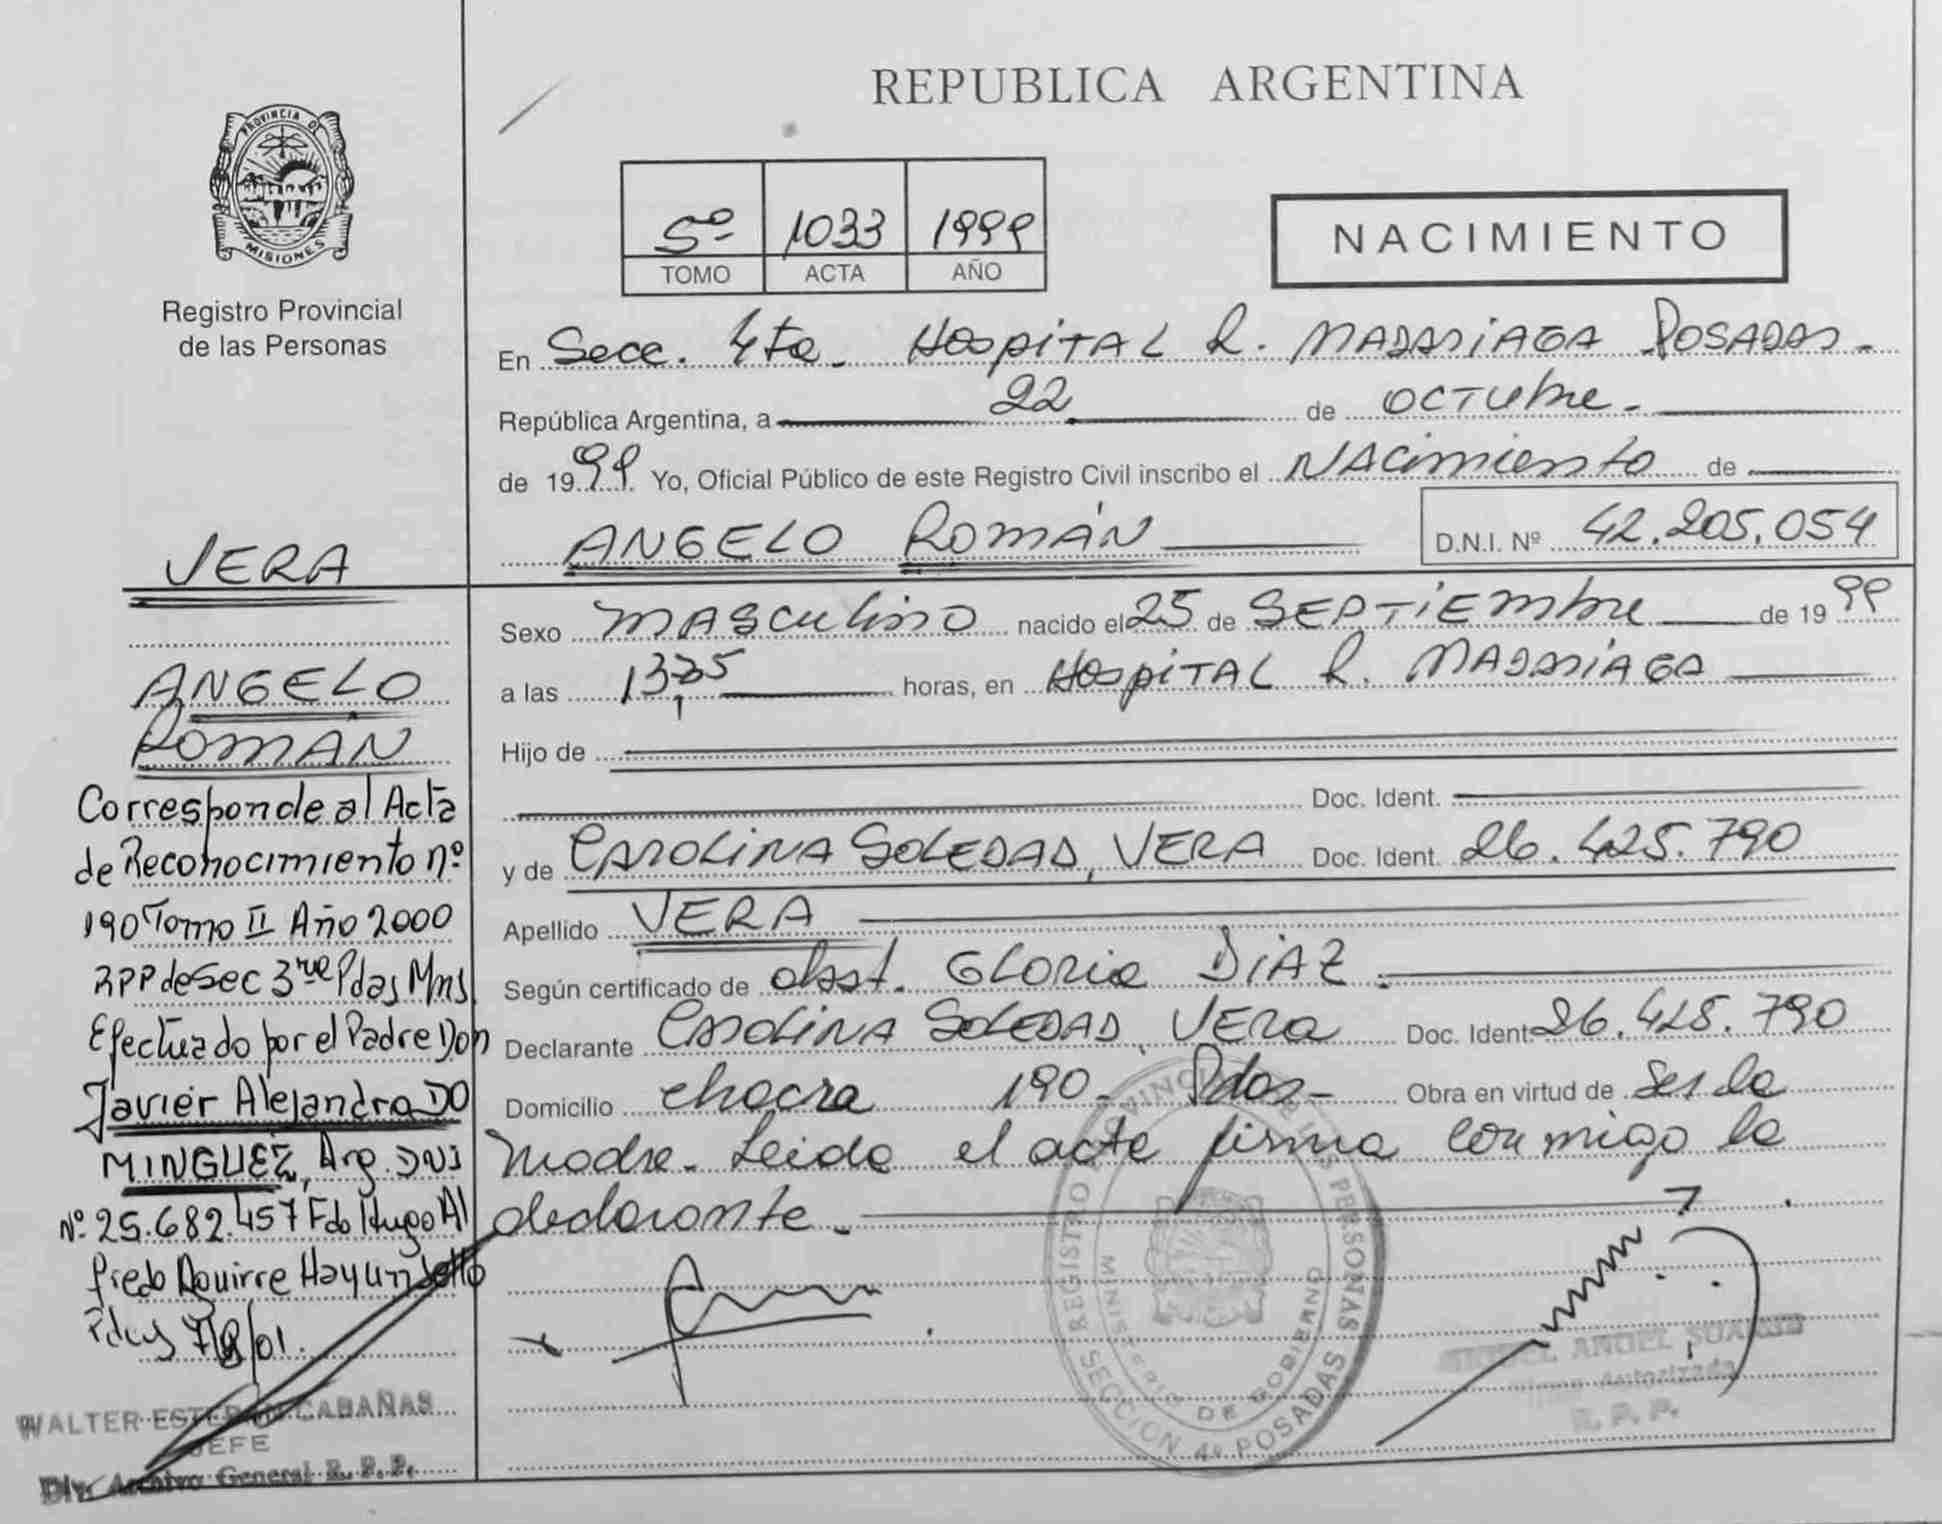 PROVINCIA DE
MISIONES
Registro Provincial
de las Personas
REPUBLICA ARGENTINA
5º 1033 1999
TOMO ACTA AÑO
NACIMIENTO
En Secc. 4ta. HOSPITAL R. MADARIAGA POSADAS.
República Argentina, a 22 de OCTUbre.
de 1999 Yo, Oficial Público de este Registro Civil inscribo el NACimiento de
ANGELO ROMÁN D.N.I. Nº 42.205.054
Sexo MASCUlino nacido el 25 de SEPTIEmbre de 1999
a las horas, en HOSPITAL R. MADARIAGA
Hijo de
Doc. Ident.
y de CAROLINA SOLEDAD, VERA Doc. Ident. 26.425.790
Apellido VERA
Según certificado de obst. GLORIA DIAZ.
Declarante CAROLINA SOLEDAD, VERA Doc. Ident. 26.425.790
Domicilio chacra 190. Pdas. Obra en virtud de Ser la
madre. Leida el acta firma conmigo la
declarante.
VERA
ANGELO
ROMÁN
Corresponde al Acta
de Reconocimiento nº
190 Tomo II Año 2000
RPP de Sec 3ra Pdas Mns
Efectuado por el Padre Don
Javier Alejandro DO
MINGUEZ, Arg. DNI
Nº 25.682.457 Fdo Hugo Al
fredo Aguirre Hayun
Pdas 7/8/01.
WALTER ESTEBAN CABAÑAS
JEFE
Div. Archivo General R. P. P.
REGISTRO PROVINCIAL DE LAS PERSONAS
MINISTERIO DE GOBIERNO
SECCION 4º POSADAS
MIGUEL ANGEL SUAREZ
Firma Autorizada
R. P. P.